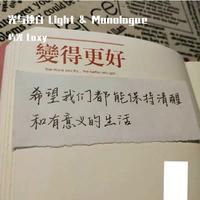 光与独白 Light & Monologue
Luxy
變得更好
希望我们都能保持清醒
和有意义的生活